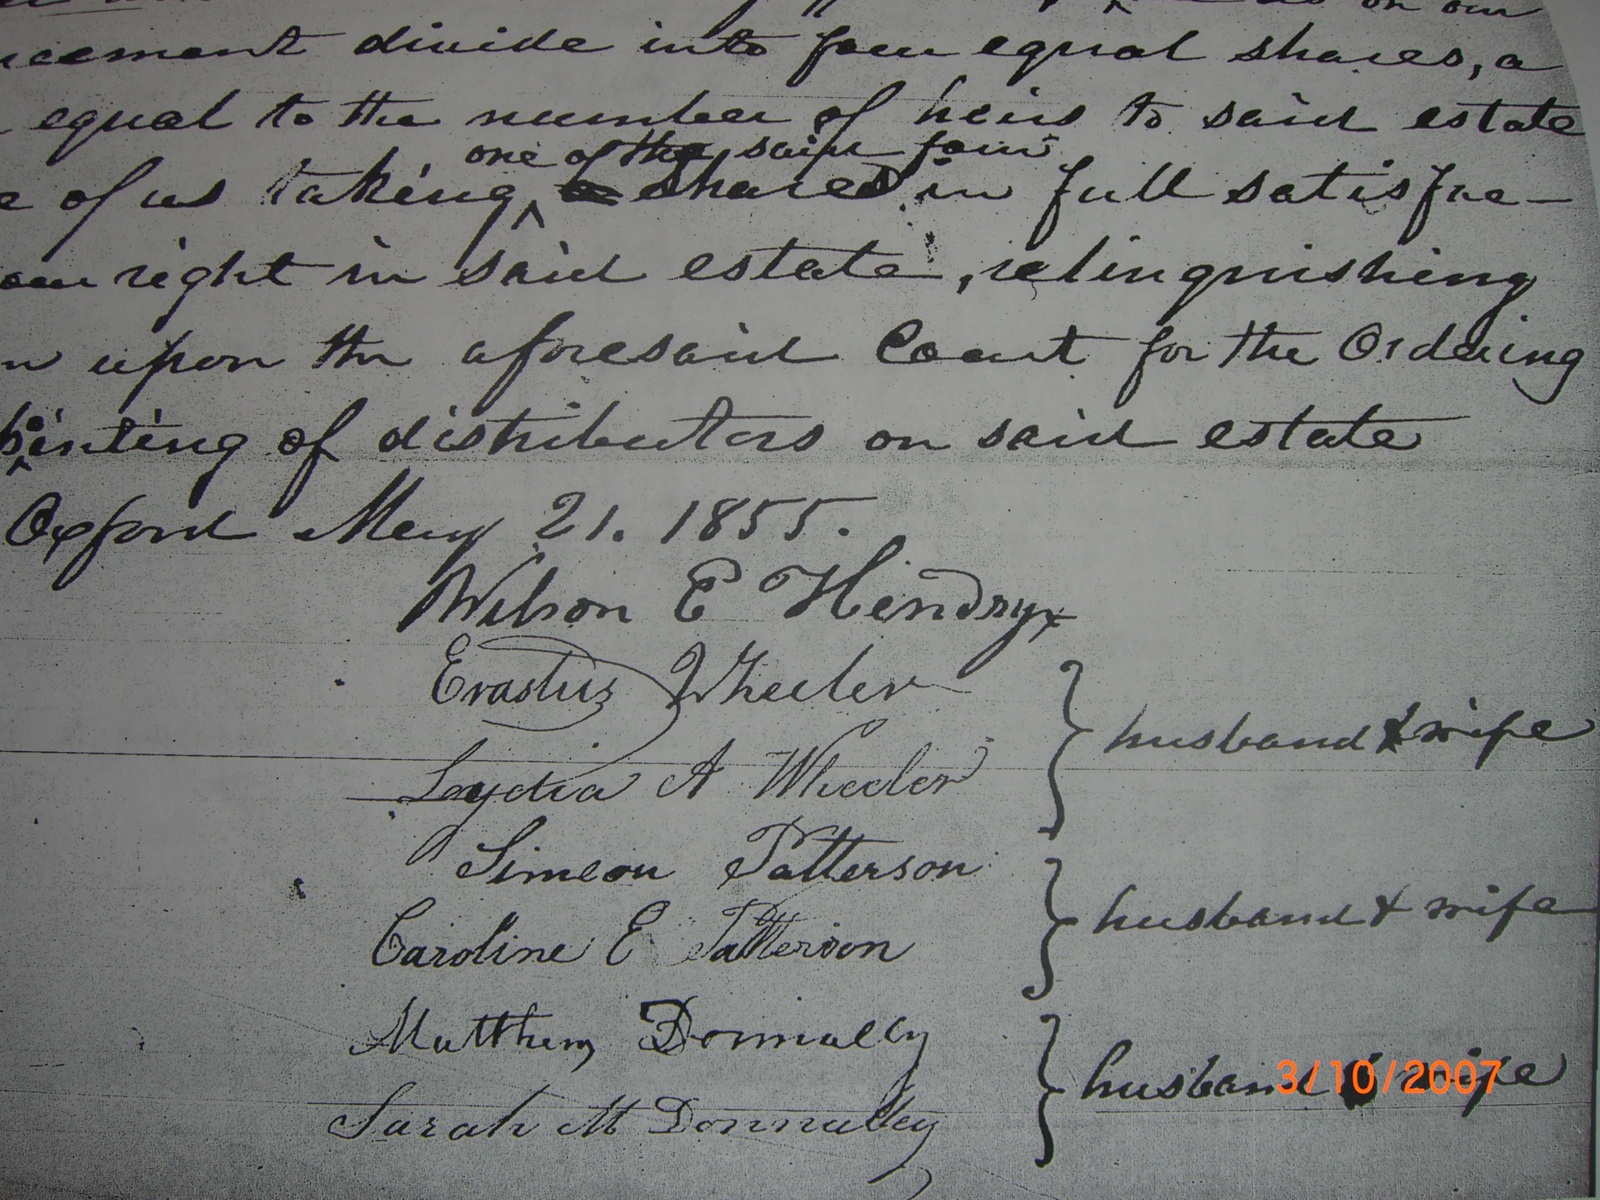 on our
divide into four equal shares, a
equal to the number of heirs to said estate
one of the said four
of us taking shares in full satisfac-
our right in said estate, relinquishing
upon the aforesaid Court for the Ordering
of distributors on said estate
Oxford May 21. 1855.
Wilson E Hendryx
Erastus Wheeler
husband & wife
Lydia A Wheeler
Simeon Patterson
husband & wife
Caroline E Patterson
Matthew Donnally
husband & wife
3/10/2007
Sarah M Donnalley